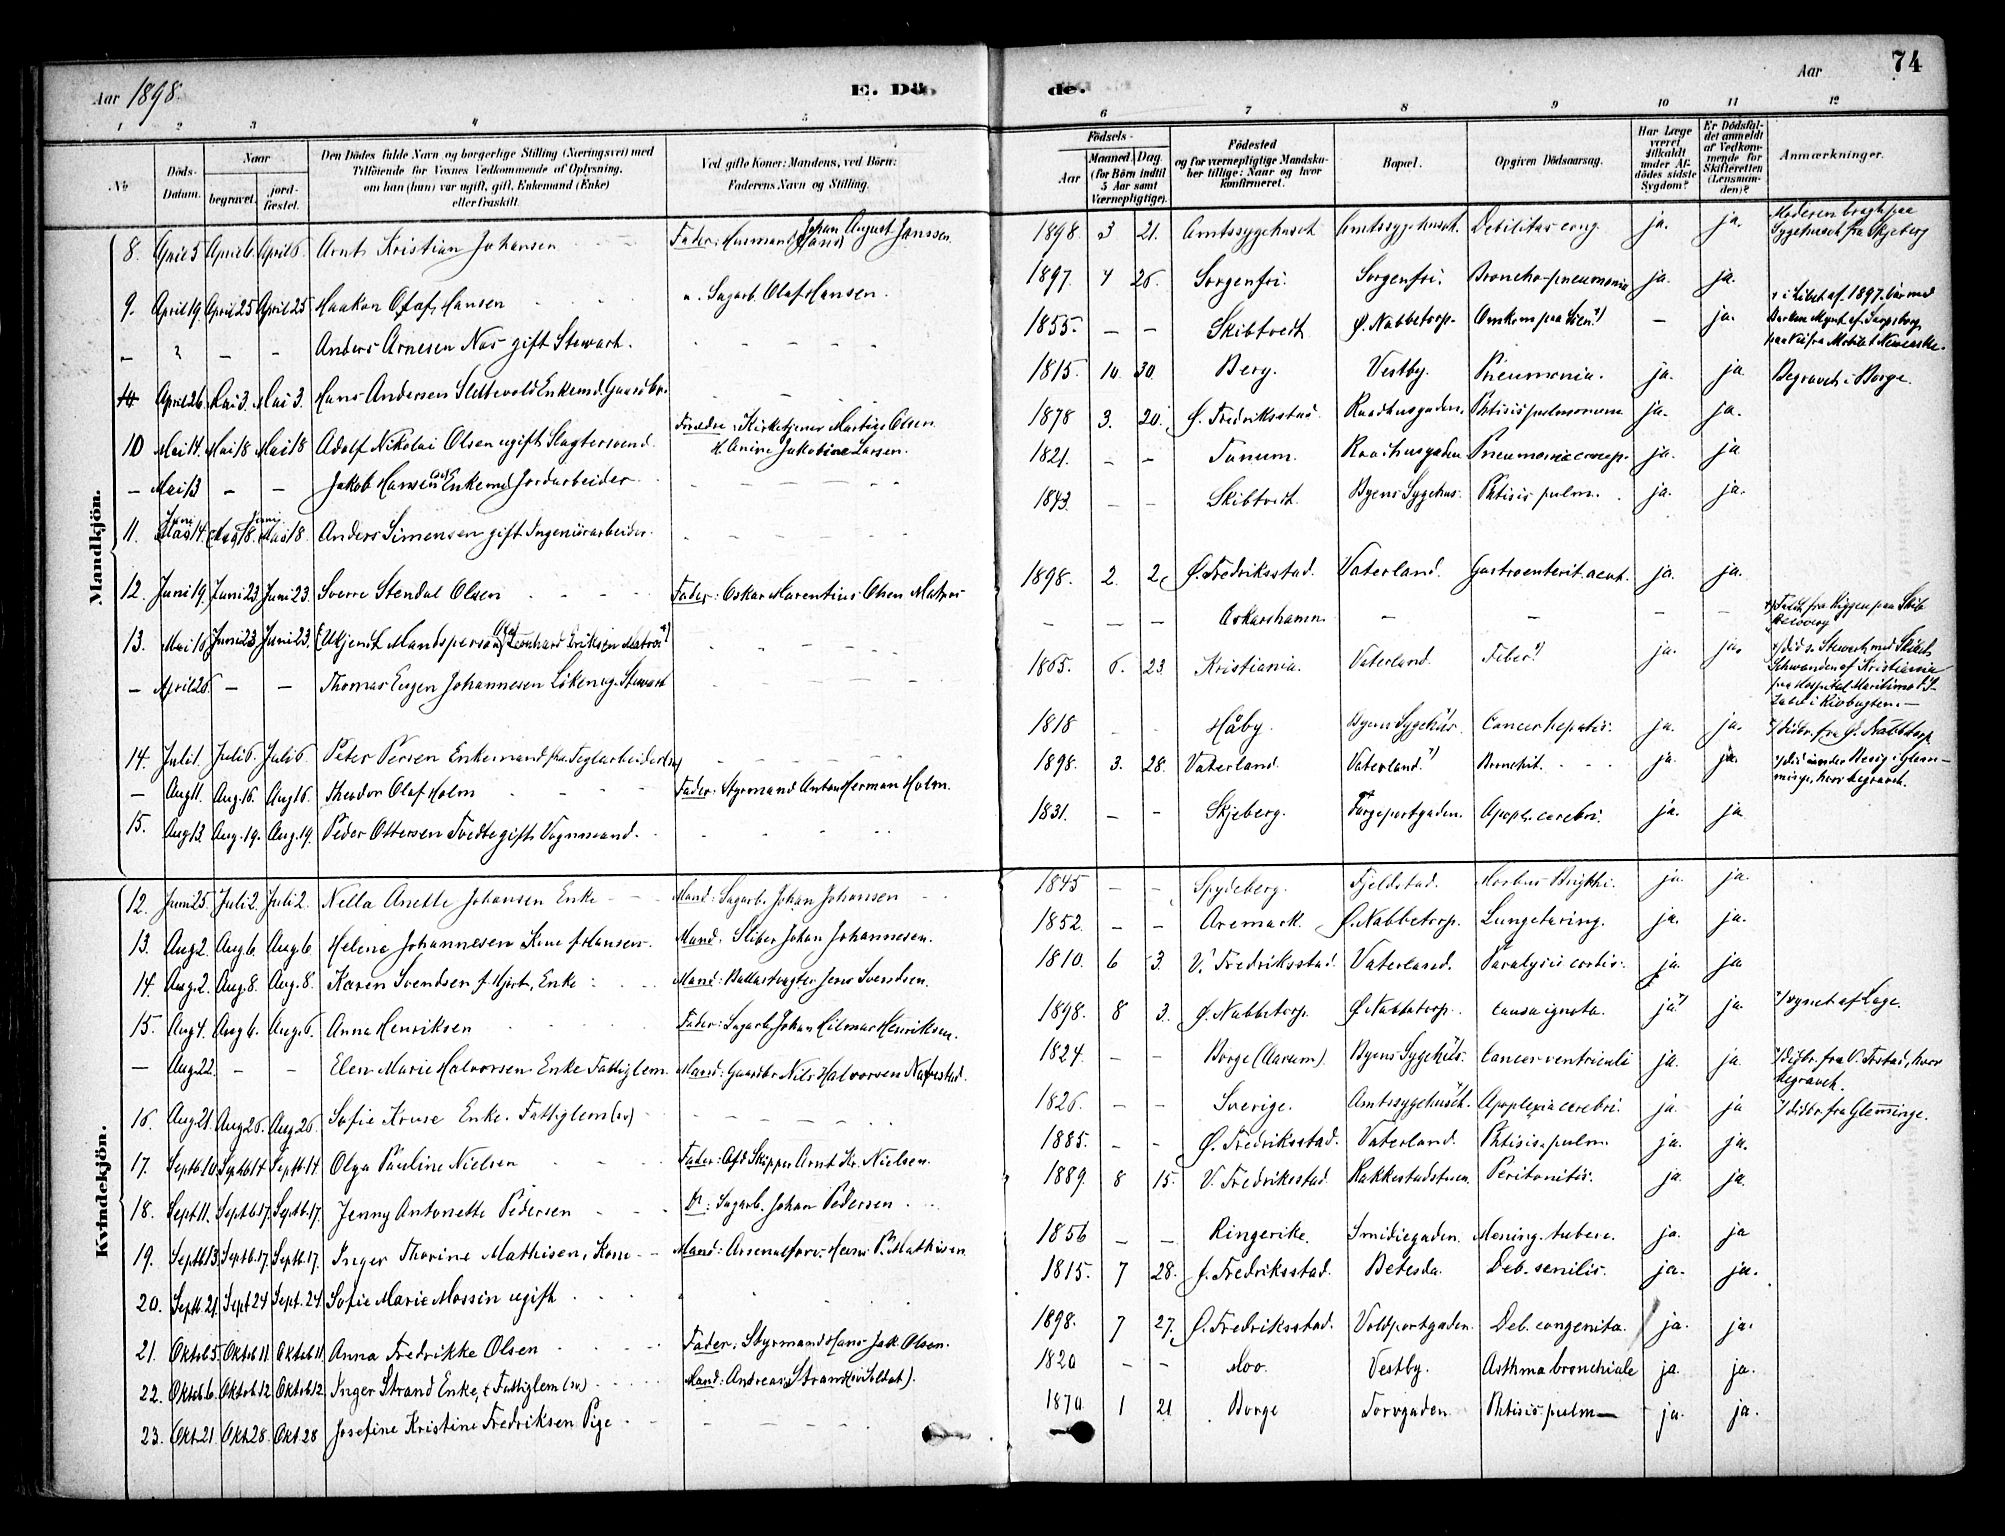 Aar 1898.
E. Dö de.
Aar
74
1 2 3 4 5 6 7 8 9 10 11 12
No
Döds-Datum.
Naar begravet. jordfæstet.
Den Dödes fulde Navn og borgerlige Stilling (Næringsvei) med Tilföiende for Voxnes Vedkommende af Oplysning. om han (hun) var ugift, gift, Enkemand (Enke) eller fraskilt.
Ved gifte Koner: Mandens, ved Börn: Faderens Navn og Stilling.
Födsels- Aar Maaned. Dag. (for Börn indtil 5 Aar samt Værnepligtige).
Födested og for værnepligtige Mandskaber tillige: Naar og hvor konfirmeret.
Bopæl.
Opgiven Dödsaarsag.
Har Læge været tilkaldt under Afdödes sidste Sygdom?
Er Dödsfaldet anmeldt af Vedkommende for Skifteretten (Lensmanden)?
Anmærkninger.
Mandkjön.
8. April 5 April 6. April 6. Arnt Kristian Johansen Fader: Husmand Johan August Janssen 1898 3 21. Amtssygehuset Amtssygehuset. Debilitas cong. ja. ja. Moderen bragt paa Sygehuset fra Skjeberg
9. April 19 April 25 April 25 Haakon Olaf Hansen " Sagarb. Olaf Hansen. 1897. 4 26. Sorgenfri. Sorgenfri. Broncho-pneumonia ja. ja.
– – – Anders Arnesen Næs gift Stewart. 1855. – – Skibtvedt Ø. Nabbetorp. Omkom paa – ja. i Libst af 1897. Barken Mynt af Sarpsborg
10 April 26 Mai 3. Mai 3. Hans Andersen Slettevold Enkemd. Gaardbr. 1815. 10. 30. Berg. Vestby. Pneumonia. ja. ja Begravet i Borge.
10 Mai 14. Mai 18 Mai 18 Adolf Nikolai Olsen ugift Slagtersvend. Forældre: Kirketjener Martius Olsen. H. Anine Jakobine Larsen. 1878 3. 20. Ø. Fredriksstad Raadhusgaden. Phtisis pulmonum ja. ja.
– Mai 13 – – Jakob Hansen Enkemd Jordarbeider 1821. – – Tunum. Raadhusgaden Pneumonia croup. ja. ja
11. Juni 14. Juni 18. Juni 18. Anders Simensen gift Ingeniörarbeider. 1843. – – Skibtvedt. Byens Sygehus. Phtisis pulm. ja. ja.
12. Juni 19. Juni 23. Juni 23. Sverre Stendal Olsen Fader: Oskar Marentius Olsen Matros 1898. 2. 2. Ø. Fredriksstad. Vaterland. Gastroenterit. acut. ja. ja.
13. Mai 16 Juni 23 Juni 23. (Ukjendt Mandsperson) Leonhard Eriksen Matros – – – Oskarshamn. – – – – Faldt fra Riggen paa Skib
– April 26. – – Thomas Eugen Johannesen Löken ug. Stewart 1865. 6. 23. Kristiania. Vaterland. Feber ja. ja. död s. Stewart med Skibet af Kristiania paa Hospital Maritimo
14. Juli 1. Juli 6. Juli 6. Peter Persen Enkemand fhv. Teglarbeider (sv) 1818 – – Håby. Byens Sygehus. Cancer hepatis. ja. ja. distr. fra Ø. Nabbetorp
– Aug 11. Aug. 16. Aug 16. Theodor Olaf Holm Fader: Styrmand Anton Herman Holm. 1898. 3. 28. Vaterland. Vaterland. Bronkit. ja. ja. död under Besög i Glemminge, hvor begravet.
15. Aug 13. Aug. 19. Aug. 19. Peder Ottersen Tvedte gift Vognmand. 1831. – – Skjeberg. Færgeportgaden. Apopl. cerebri. ja. ja
Kvindekjön.
12. Juni 25. Juli 2. Juli 2. Nella Anette Johansen Enke Mand: Sagarb. Johan Johansen 1845 – – Spydeberg. Fjeldstad. Morbus Brigthi. ja. ja.
13. Aug 2. Aug 6. Aug 6 Helene Johannesen Kone f. Hansen. Mand: Sliber Johan Johannesen. 1852. – – Aremark. Ø. Nabbetorp. Lungetæring. ja. ja.
14. Aug. 2. Aug. 8. Aug. 8. Karen Svendsen f. Hjort, Enke Mand: Ballastvagter Jens Svendsen. 1810. 6 3. V. Fredriksstad. Vaterland. Paralysis cordis. ja. ja
15. Aug 4. Aug 6. Aug. 6. Anna Henriksen Fader: Sagarb. Johan Hilmar Henriksen. 1898. 8 3. Ø. Nabbetorp. Ø. Nabbetorp. causa ignota. ja ja. synet af Læge.
– Aug 22. – – Elen Marie Halvorsen Enke Fattiglem. Mand: Gaardbr. Nils Halvorsen Nabbestad. 1824. – – Borge (Aarum). Byens Sygehus. Cancer ventriculi ja. ja. distr. fra V. Frstad, hvor begravet.
16. Aug 21. Aug 26. Aug 26 Sofie Kruse Enke. Fattiglem (sv) 1826. – – Sverige. Amtssygehuset. Apoplexia cerebri. ja. ja distr. fra Glemminge.
17. Septb. 10 Septb 14 Septb. 14 Olga Pauline Nielsen Fader: Afd. Skipper Arnt Kr. Nielsen. 1885. – – Ø. Fredriksstad. Vaterland. Phtisis pulm. ja. ja.
18. Sept 11. Septb 17. Septb. 17. Jenny Antonette Pedersen Do: Sagarb. Johan Pedersen 1889. 8 15. V. Fredriksstad. Rakkestadstuen. Peritonitis. ja. ja.
19. Septb 13. Septb. 17. Septb. 17. Inger Thorine Mathisen, Kone Mand: Arsenalforv. Hans P. Mathisen 1856 – – Ringerike. Smidiegaden. Mening. tuberc. ja. ja
20. Septb. 21. Sept 24 Sept. 24. Sofie Marie Mossin ugift 1815. 7 28. Ø. Fredriksstad. Betesda. Deb. senilis. ja. ja.
21. Oktob 5. Oktob 11. Oktob 11. Anna Fredrikke Olsen Fader: Styrmand Hans Jak. Olsen. 1898. 7 27. Ø. Fredriksstad. Voldportgaden. Deb. congenita. ja. ja.
22. Oktob 6. Oktob. 12. Oktob. 12. Inger Strand Enke, (Fattiglem (sv) Mand: Andreas Strand (Soldat). 1820 – – Moo. Vestby. Asthma bronchiale ja. ja.
23. Okt. 21. Okt. 28. Okt 28 Josefine Kristine Fredriksen Pige 1870 1 21. Borge Torvgaden Phtisis pulm ja. ja.